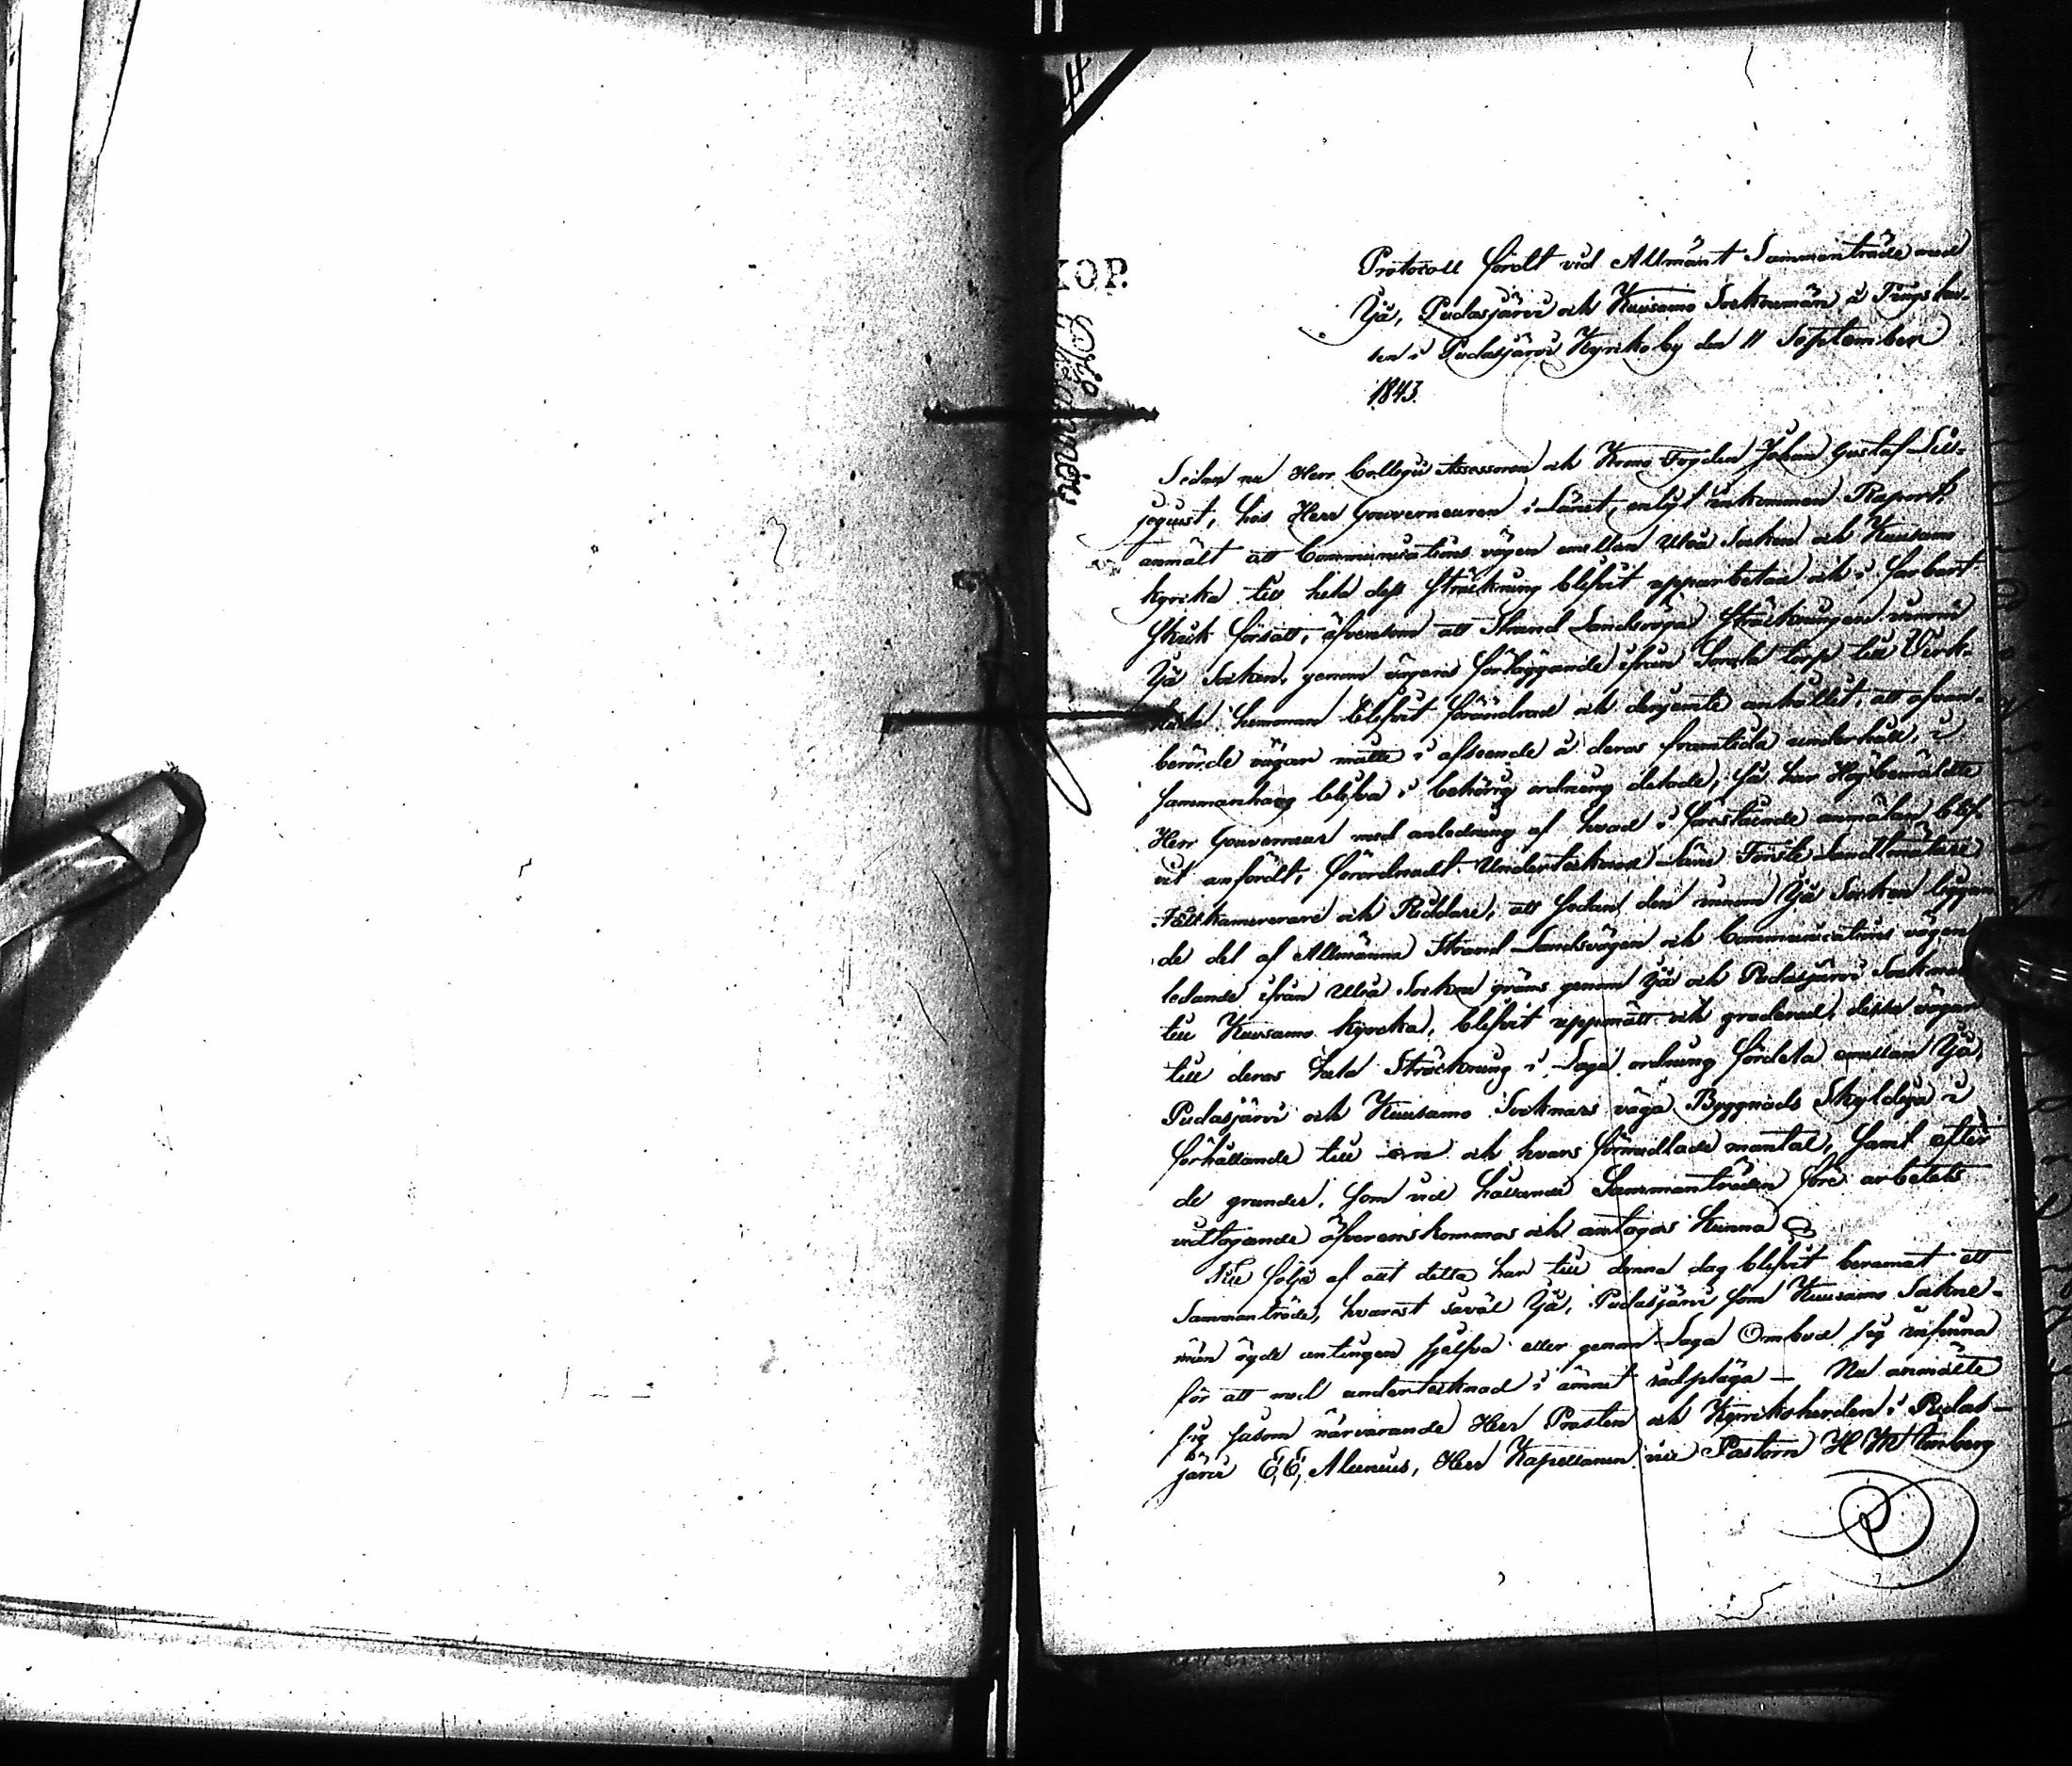 KOP.
Protocoll fördt vid Allmänt Sammanträde med
Yjå, Pudasjärvi och Kuusamo Socknemän å Tingshu-
sen i Pudasjärvi Kyrkoby den 11 September
1843.
Sedan nu Herr Collegii Assessoren och Krono Fogden Johan Gustaf Lill-
jequist, hos Herr Gouverneuren i Länet, enligt inkommen Raport,
anmält att Communications vägen emellan Uleå Socken och Kuusamo
kyrka till hela dess sträckning blifvit upparbetad och i farbart
skick försatt, äfvensom att Strand Landsväga sträckningen innom
Yjå Socken, genom vägens förläggande ifrån torp till
hemman blifvit förändrad och derjemte anhållet, att ofvan-
berörde vägar måtte i afseende å deras framtida underhåll, i
sammanhang blifva i behörig ordning delade; så har Högbemälte
Herr Gouverneur med anledning af hvad i förestående anmälan blif-
vit anfördt, förordnadt Undertecknad Läns Förste Landtmätare
Fältkamererare och Riddare, att sedan den innom Yjå Socken liggan-
de del af Allmänna Strand Landsvägen och Communications vägen
ledande ifrån Uleå Sockne gräns genom Yjå och Pudasjärvi Socknar
till Kuusamo Kyrcka, blifvit uppmätt och graderad, dessa vägar
till deras hela Sträckning i Laga ordning fördela emellan Yjå,
Pudasjärvi och Kuusamo Socknars väga Byggnads Skyldiga i
förhållande till ens och hvars förmedlade mantal, samt efter
de grunder, som vid hållande Sammanträden före arbetets
vidtagande öfverenskommas och antagas kunna
Till följe af allt detta har till denna dag blifvit beramat ett
Sammanträde, hvarest såväl Yjå, Pudasjärvi som Kuusamo Sockne-
män ägde antingen sjelfva eller genom Laga Ombud sig infinna
för att med undertecknad i ämnet rådpläga — Nu anmälte
sig såsom närvarande Herr Prosten och Kyrkoherden i Pudas-
järvi E, E, Alcenius, Herr Kapellanen vice Pastorn H